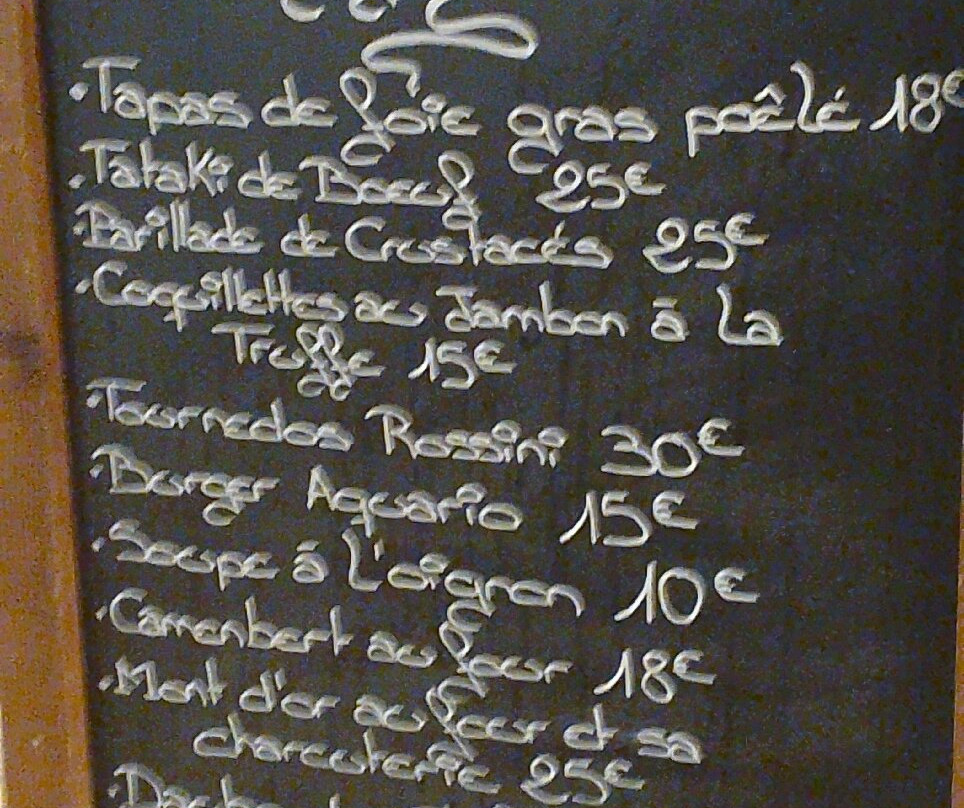 ·Tapas de foie gras poêlé 18€
·Tataki de Boeuf 25€
·Parillade de Crustacés 25€
·Coquillettes au Jambon à la
Truffe 15€
·Tournedos Rossini 30€
·Burger Aquario 15€
·Soupe à l'oignon 10€
·Camenbert au four 18€
·Mont d'or au four et sa
charcuterie 25€